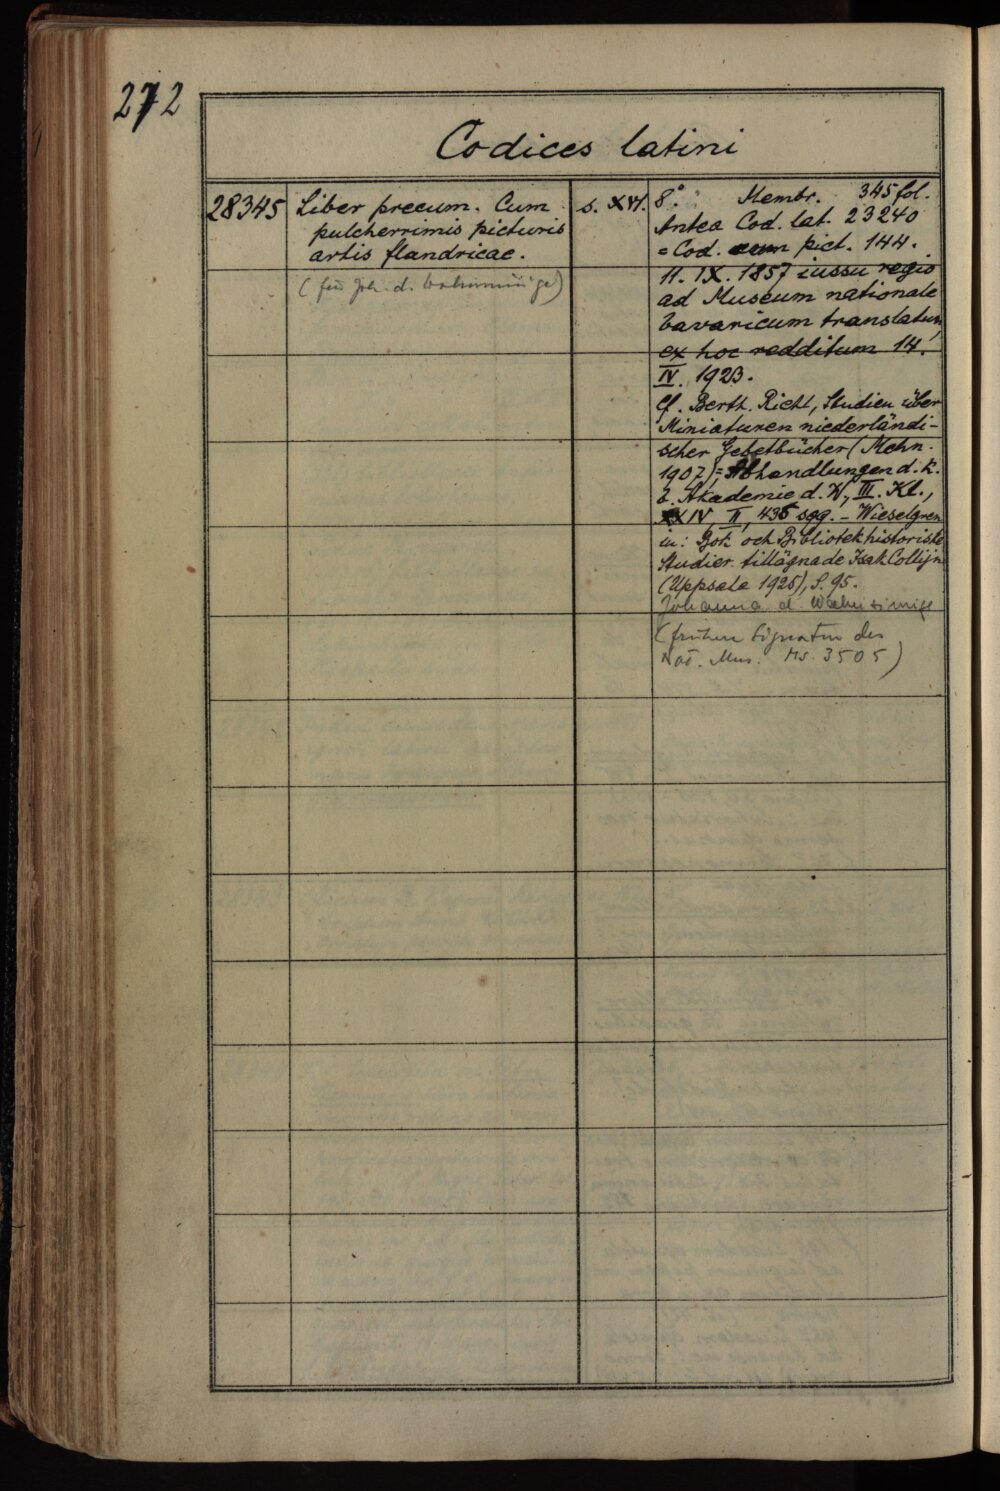 272
Codices latini
28345
Liber precum. Cum
pulcherrimis picturis
artis flandricae.
(für Joh. d. Wahnsinnige)
s. XVI.
8°. Membr. 345 fol.
Antea Cod. lat. 23240
= Cod. cum pict. 144.
11. IX. 1857 iussu regio
ad Museum nationale
bavaricum translatum,
ex hoc redditum 14.
IV. 1923.
Cf. Berth. Riehl, Studien über
Miniaturen niederländi-
scher Gebetbücher (Mchn.
1907) = Abhandlungen d. k.
b. Akademie d. W., III. Kl.,
XXIV, II, 435 sqq. – Wieselgren
in: Bok och Bibliotekhistoriska
Studier tillägnade Isak Collijn
(Uppsala 1925), S. 95.
Johanna d. Wahnsinnige
(frühere Signatur des
Nat. Mus. Ms. 3505)